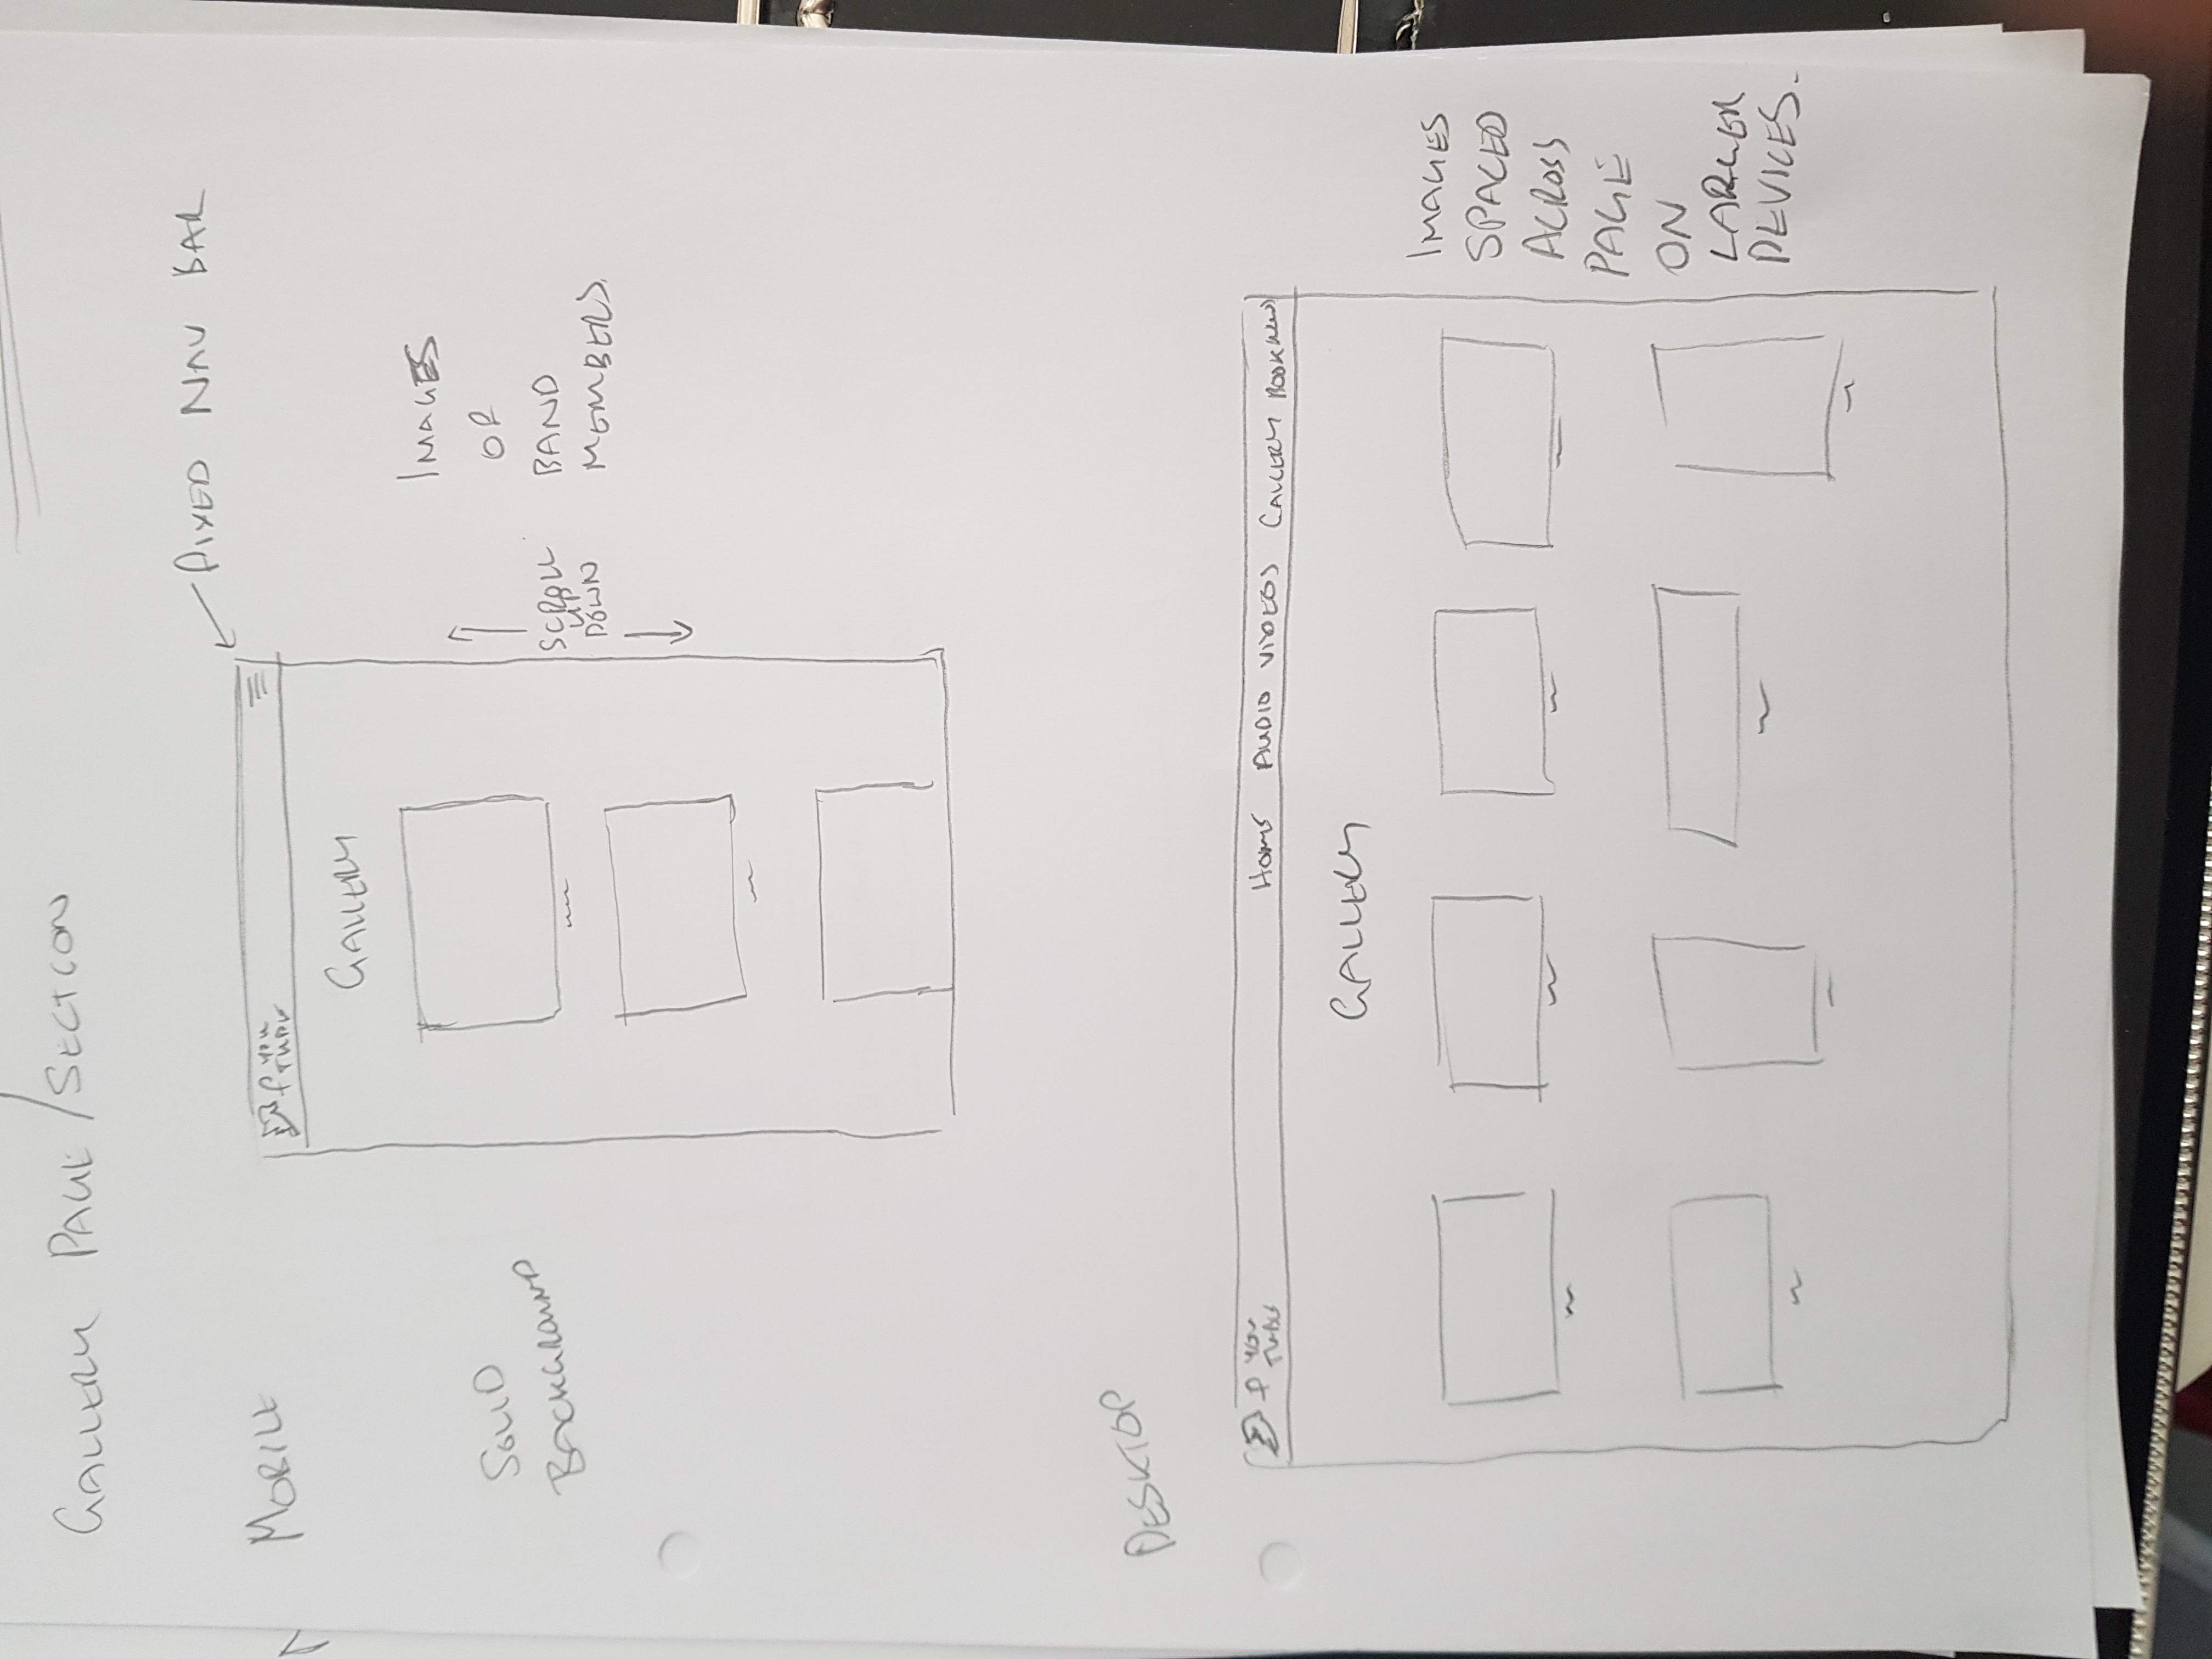 GALLERY PAGE/SECTION
FIXED NAV BAR
MOBILE
f YOU
TUBE
GALLERY
SOLID
BACKGROUND
SCROLL
UP
DOWN
IMAGES
OF
BAND
MEMBERS.
DESKTOP
f YOU
TUBE
HOME AUDIO VIDEOS GALLERY
GALLERY
IMAGES
SPACED
ACROSS
PAGE
ON
LARGER
DEVICES.